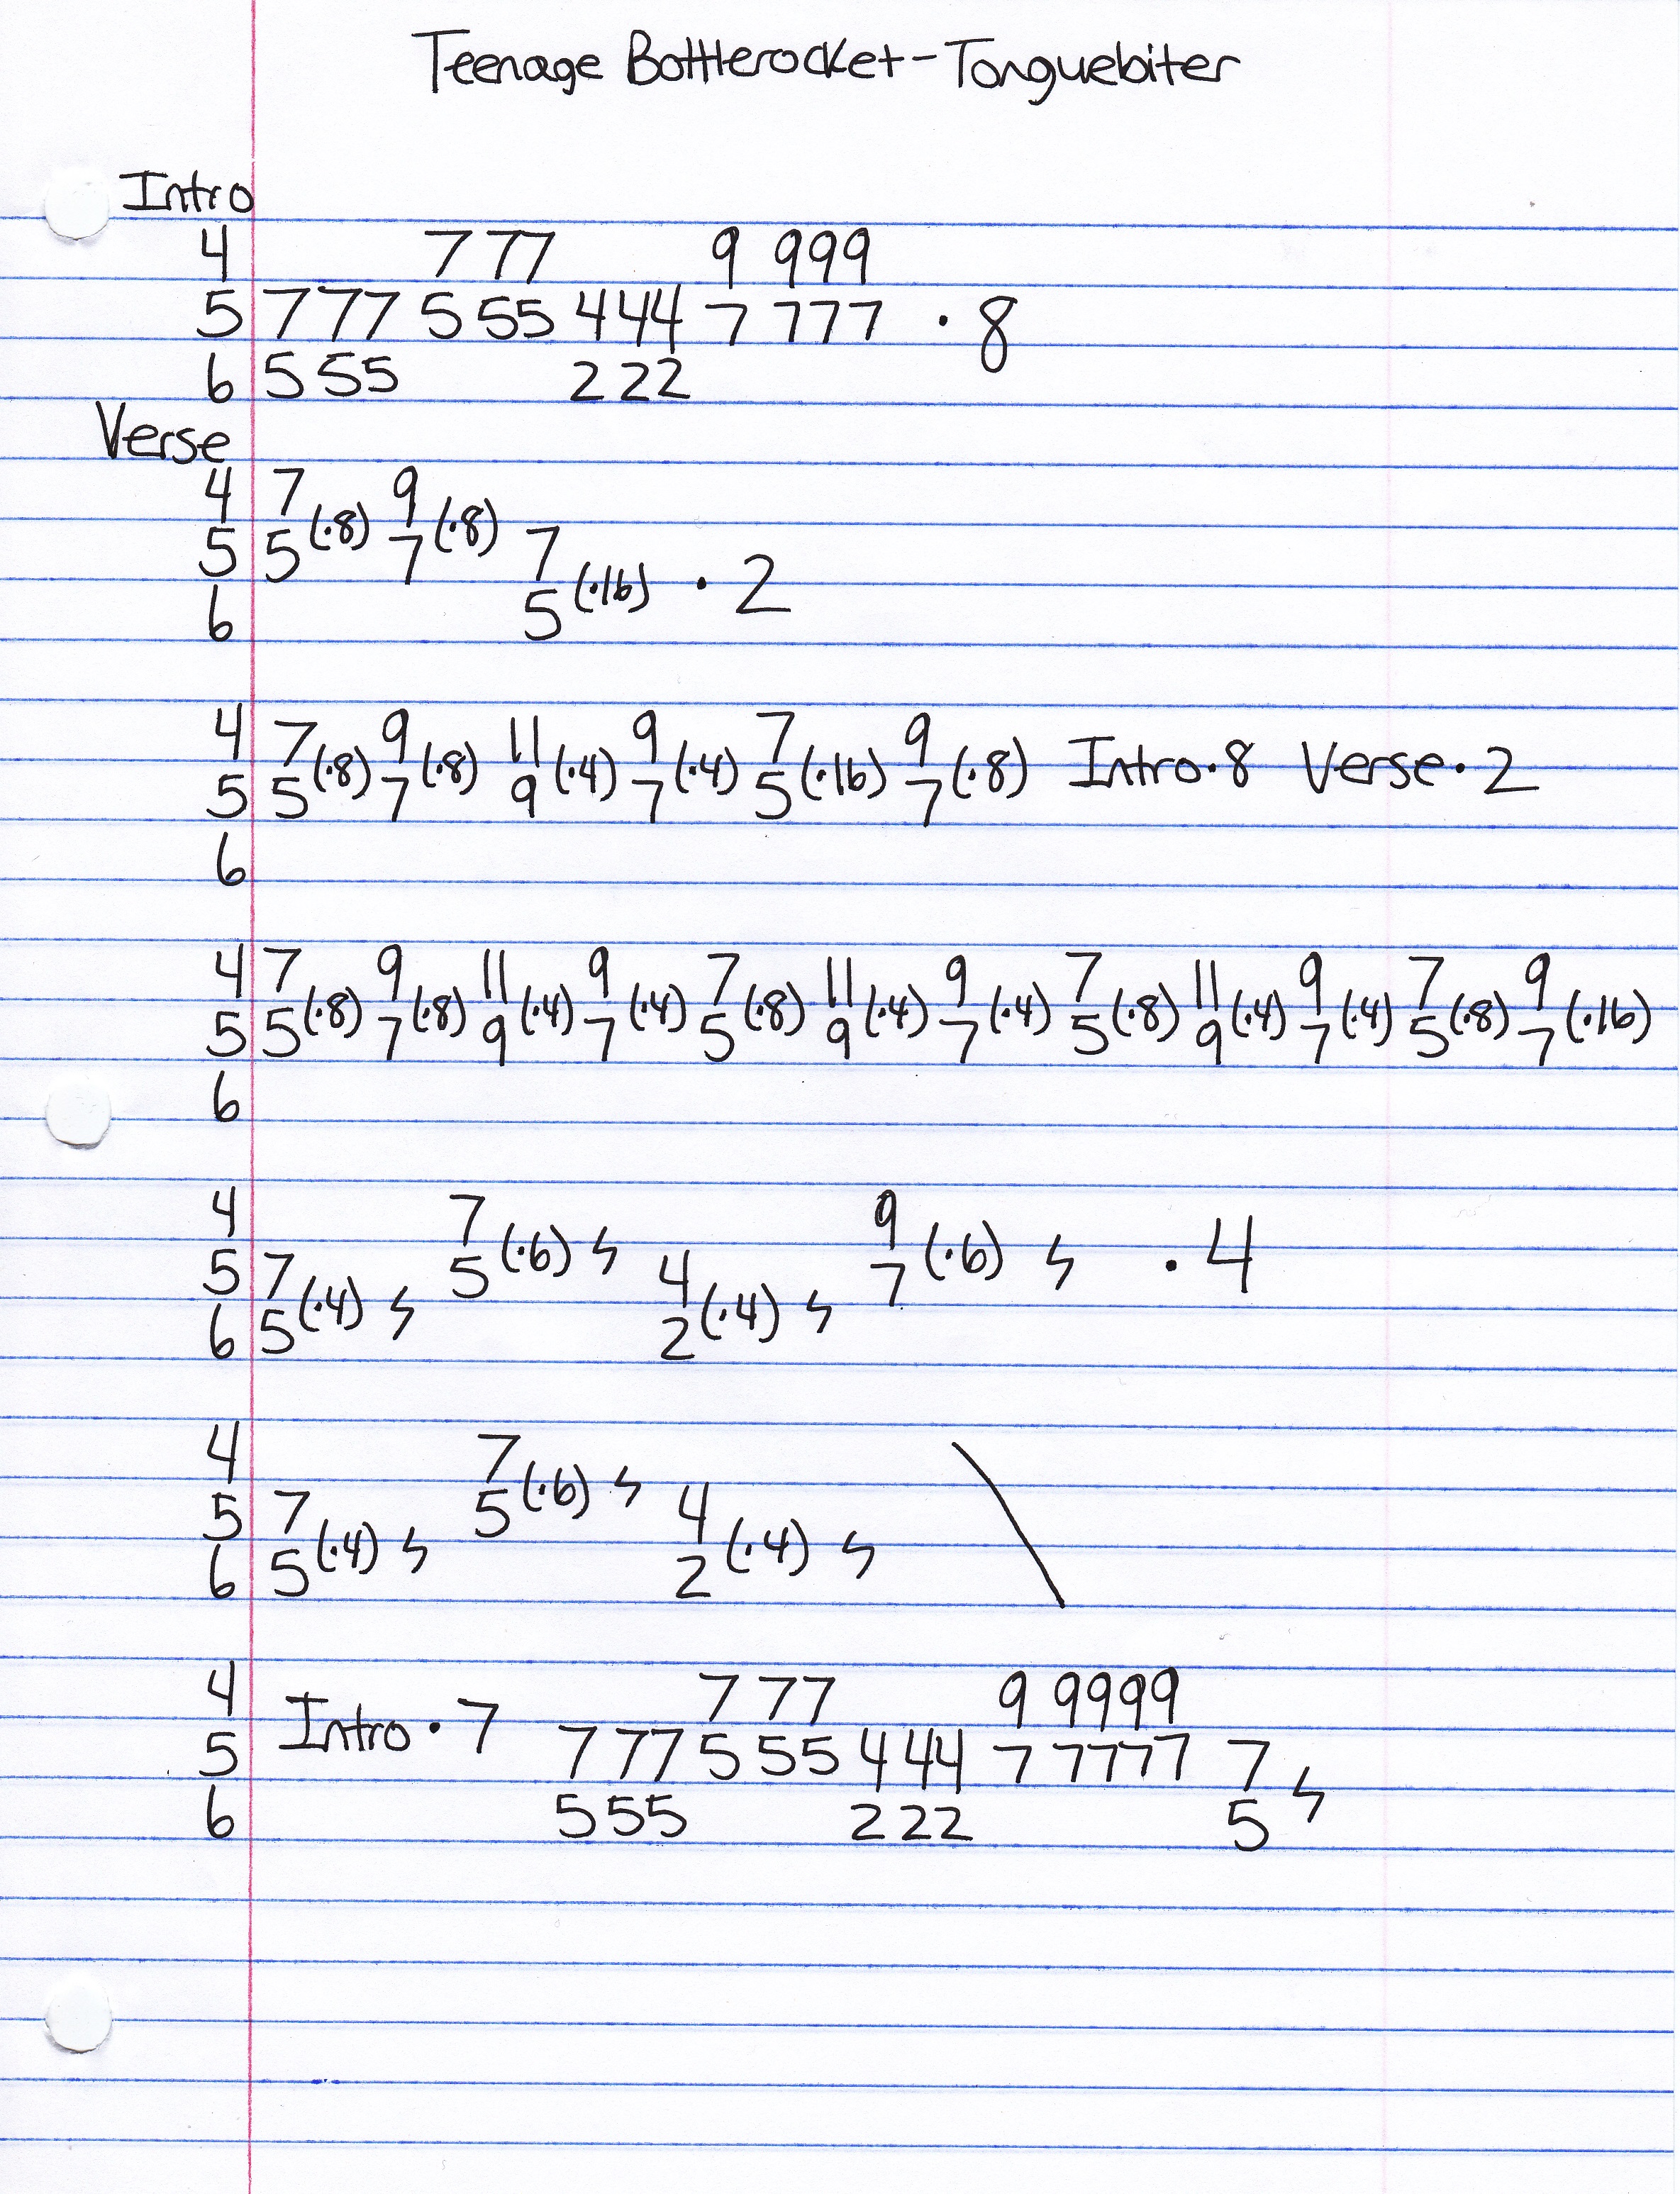 Teenage Bottlerocket-Tonguebiter
Intro
4 7 77 9 999
5 7 77 5 55 4 44 7 777 · 8
6 5 55 2 22
Verse
4 7 9
5 5 (·8) 7 (·8) 7
6 5 (·16) · 2
4 7 9 11 9 7 9
5 5 (·8) 7 (·8) 9 (·4) 7 (·4) 5 (·16) 7 (·8) Intro · 8 Verse · 2
6
4 7 9 11 9 7 11 9 7 11 9 7 9
5 5 (·8) 7 (·8) 9 (·4) 7 (·4) 5 (·8) 9 (·4) 7 (·4) 5 (·8) 9 (·4) 7 (·4) 5 (·8) 7 (·16)
6
4 7 9
5 7 5 (·6) 4 7 (·6) · 4
6 5 (·4) 2 (·4)
4 7
5 7 5 (·6) 4
6 5 (·4) 2 (·4)
4 7 77 9 9999
5 Intro · 7 7 77 5 55 4 44 7 7777 7
6 5 55 2 22 5